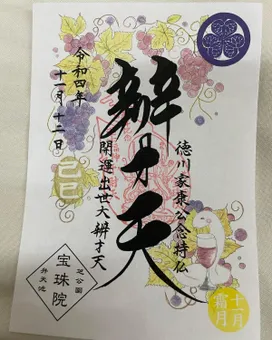 徳川家康公念持仏
辨才天
開運出世大辨才天
令和四年
十一月十二日
己巳
芝公園
宝珠院
弁天池
十一月
霜月